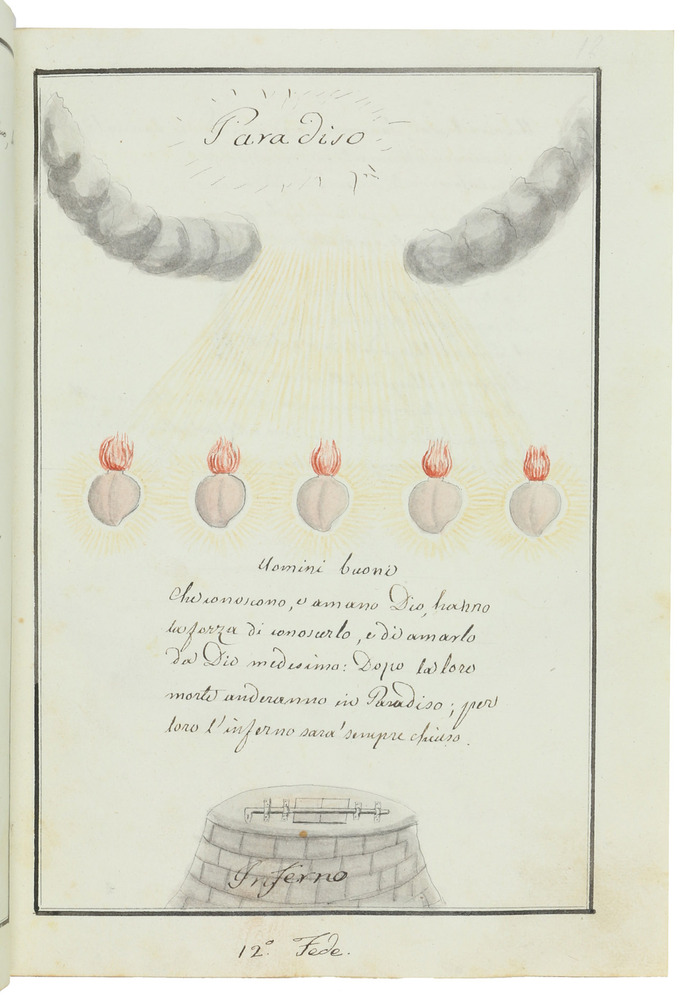 Paradiso
Uomini buoni
che conoscono, e amano Dio, hanno
la forza di conoscerlo, e di amarlo
da Dio medesimo: Dopo la loro
morte anderanno in Paradiso; per
loro l'inferno sara' sempre chiuso.
Inferno
12.° Fede.